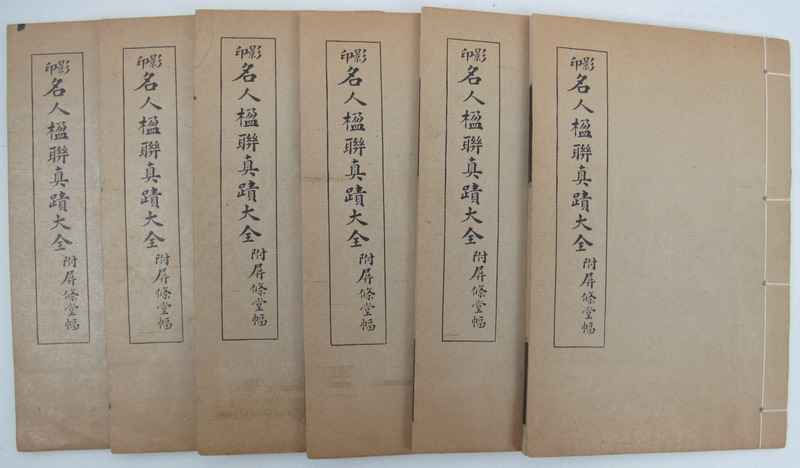 影印名人楹聯真蹟大全附屏條堂幅
影印名人楹聯真蹟大全附屏條堂幅
影印名人楹聯真蹟大全附屏條堂幅
影印名人楹聯真蹟大全附屏條堂幅
影印名人楹聯真蹟大全附屏條堂幅
影印名人楹聯真蹟大全附屏條堂幅